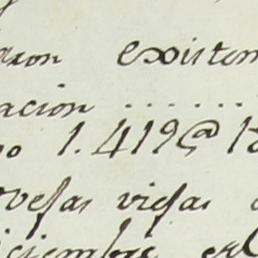 aron existen
acion ......
no 1.419@ 15
ovejas viejas
iciembre